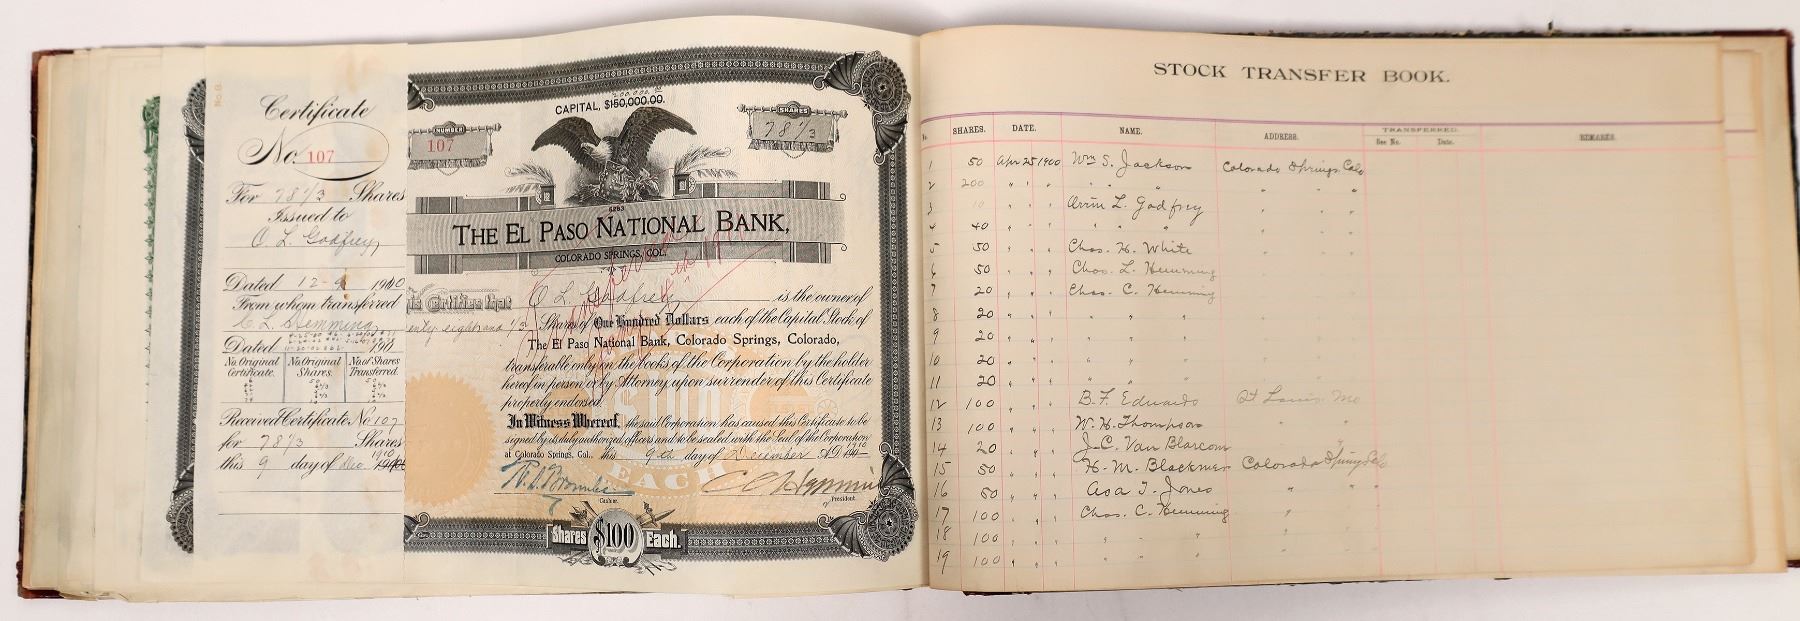 Certificate
No. 107
For 78 1/3 Shares
Issued to
O. L. Godfrey
Dated 12-9 1910
From whom transferred
C. L. Hemming
Dated 190
No Original Certificate. No Original Shares. No of Shares Transferred.
Received Certificate No 107
for 78 1/3 Shares
this 9 day of Dec 1910
CAPITAL, $150,000.00.
200,000.00
NUMBER
107
SHARES
78 1/3
5283
THE EL PASO NATIONAL BANK,
COLORADO SPRINGS, COL.
This Certifies that O L Godfrey is the owner of
enty eight and 1/3 Shares of One Hundred Dollars each of the Capital Stock of
The El Paso National Bank, Colorado Springs, Colorado,
transferable only on the books of the Corporation by the holder
hereof in person or by Attorney, upon surrender of this Certificate
properly endorsed.
In Witness Whereof, the said Corporation has caused this Certificate to be
signed by its duly authorized officers and to be sealed with the Seal of the Corporation
at Colorado Springs, Col., this 9th day of December A.D. 1910
$100
EACH
Cashier.
President.
Shares $100 Each.
STOCK TRANSFER BOOK.
No. SHARES. DATE. NAME. ADDRESS. TRANSFERRED. REMARKS.
See No. Date.
1 50 Apr 25 1900 Wm S. Jackson Colorado Springs Colo
2 200 " " " " " " " " "
3 10 " " " Orrin L. Godfrey " " "
4 40 " " " " " " " " "
5 50 " " " Chas. H. White
6 50 " " " Chas. L. Hemming
7 20 " " " Chas. C. Hemming
8 20 " " " " " "
9 20 " " " " " "
10 20 " " " " " "
11 20 " " " " " "
12 100 " " " B. F. Edwards St Louis Mo
13 100 " " " W. H. Thompson " " "
14 20 " " " J. C. Van Blarcom " " "
15 50 " " " H. M. Blackmer Colorado Springs Colo
16 50 " " " Asa T. Jones " " "
17 100 " " " Chas. C. Hemming " "
18 100 " " " " " " " "
19 100 " " " " " " " "